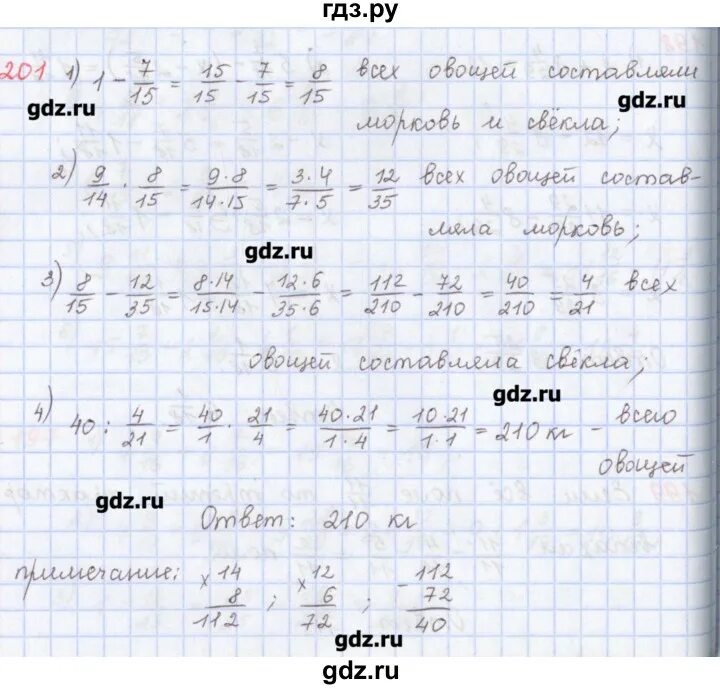 гдз.ру
201 1) 1 - 7/15 = 15/15 - 7/15 = 8/15 всех овощей составляли
gdz.ru
gdz.ru
морковь и свёкла;
2) 9/14 · 8/15 = 9·8/14·15 = 3·4/7·5 = 12/35 всех овощей состав-
ляла морковь;
gdz.ru
3) 8/15 - 12/35 = 8·14/15·14 - 12·6/35·6 = 112/210 - 72/210 = 40/210 = 4/21 всех
овощей составляла свёкла;
gdz.ru
4) 40 : 4/21 = 40/1 · 21/4 = 40·21/1·4 = 10·21/1·1 = 210 кг - всего
овощей
gdz.ru
Ответ: 210 кг
примечание: × 14 8 112 ; × 12 6 72 ; - 112 72 40
gdz.ru
gdz.ru